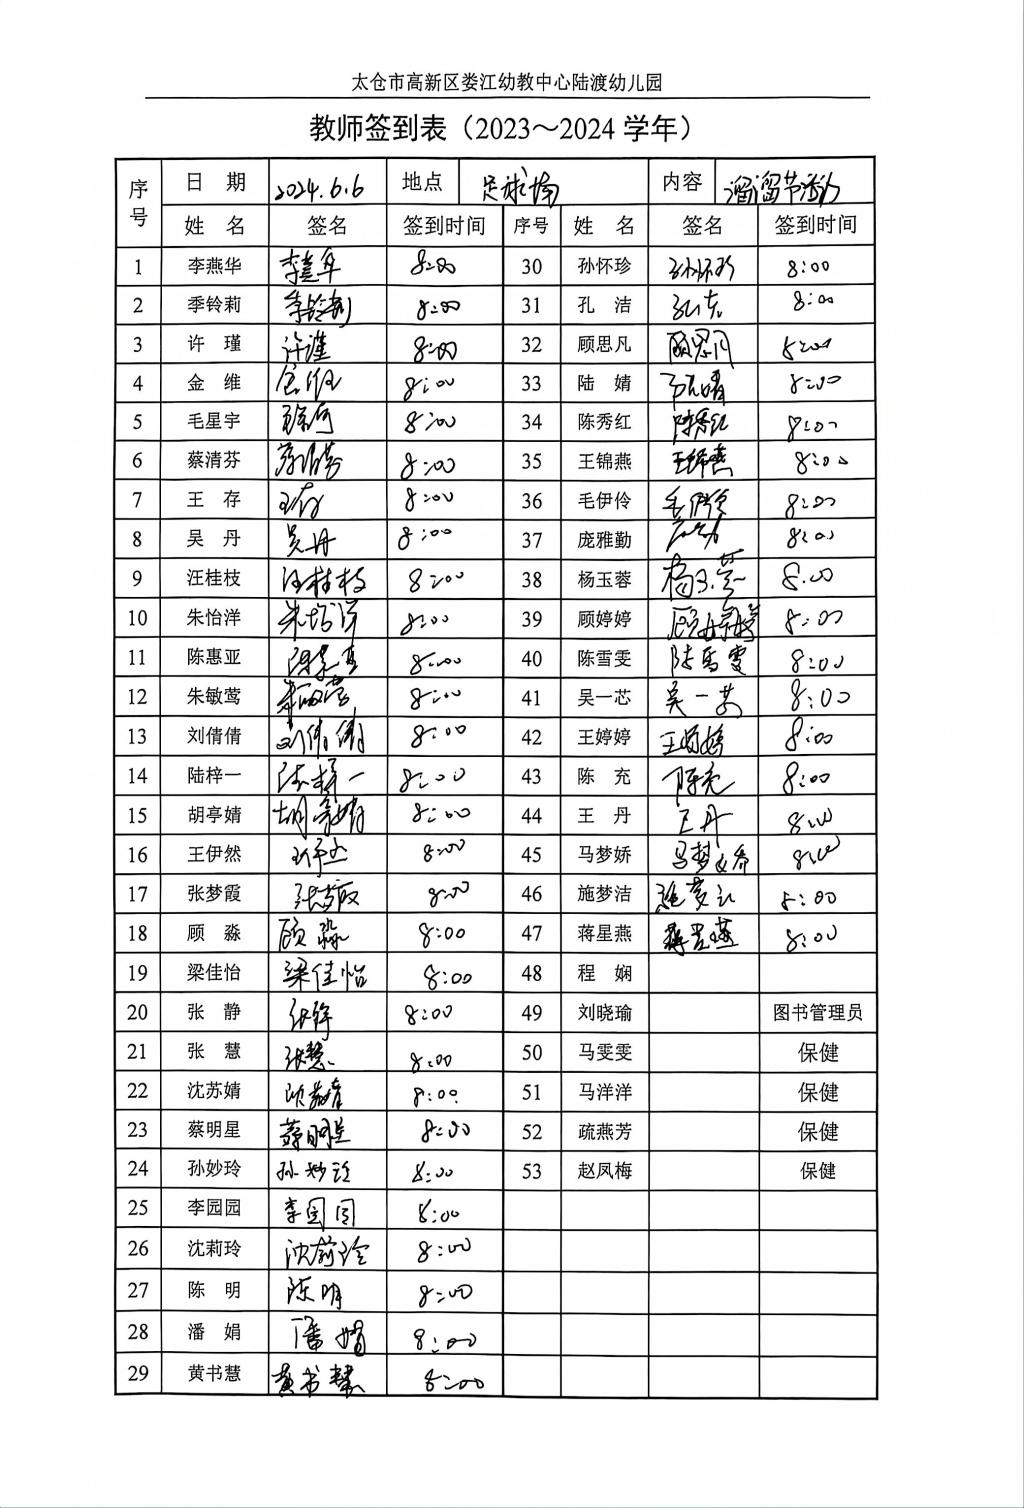 太仓市高新区娄江幼教中心陆渡幼儿园
教师签到表（2023～2024 学年）
序号 日 期 2024.6.6 地点 足球场 内容 溜溜节活动
姓 名 签名 签到时间 序号 姓 名 签名 签到时间
1 李燕华 李燕华 8:00 30 孙怀珍 孙怀珍 8:00
2 季铃莉 季铃莉 8:00 31 孔 洁 孔洁 8:00
3 许 瑾 许瑾 8:00 32 顾思凡 顾思凡 8:00
4 金 维 金维 8:00 33 陆 婧 陆婧 8:00
5 毛星宇 8:00 34 陈秀红 陈秀红 8:00
6 蔡清芬 蔡清芬 8:00 35 王锦燕 王锦燕 8:00
7 王 存 王存 8:00 36 毛伊伶 毛伊伶 8:00
8 吴 丹 吴丹 8:00 37 庞雅勤 8:00
9 汪桂枝 汪桂枝 8:00 38 杨玉蓉 杨玉蓉 8:00
10 朱怡洋 朱怡洋 8:00 39 顾婷婷 顾婷婷 8:00
11 陈惠亚 陈惠亚 8:00 40 陈雪雯 陈雪雯 8:00
12 朱敏莺 朱敏莺 8:00 41 吴一芯 吴一芯 8:00
13 刘倩倩 刘倩倩 8:00 42 王婷婷 王婷婷 8:00
14 陆梓一 陆梓一 8:00 43 陈 充 陈充 8:00
15 胡亭婧 胡亭婧 8:00 44 王 丹 王丹 8:00
16 王伊然 王伊然 8:00 45 马梦娇 马梦娇 8:00
17 张梦霞 张梦霞 8:00 46 施梦洁 施梦洁 8:00
18 顾 淼 顾淼 8:00 47 蒋星燕 蒋星燕 8:00
19 梁佳怡 梁佳怡 8:00 48 程 娴
20 张 静 张静 8:00 49 刘晓瑜 图书管理员
21 张 慧 张慧 8:00 50 马雯雯 保健
22 沈苏婧 沈苏婧 8:00 51 马洋洋 保健
23 蔡明星 蔡明星 8:00 52 疏燕芳 保健
24 孙妙玲 孙妙玲 8:00 53 赵凤梅 保健
25 李园园 李园园 8:00
26 沈莉玲 沈莉玲 8:00
27 陈 明 陈明 8:00
28 潘 娟 潘娟 8:00
29 黄书慧 黄书慧 8:00